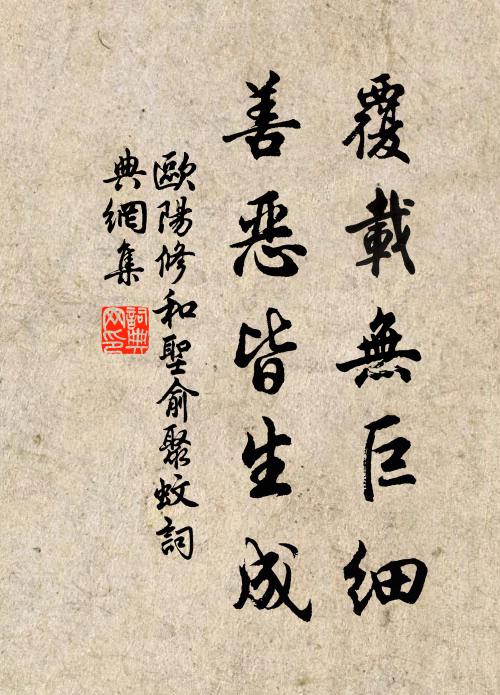 覆載無巨細
善惡皆生成
歐陽修和聖俞聚蚊詞
典網集
詞典
网印